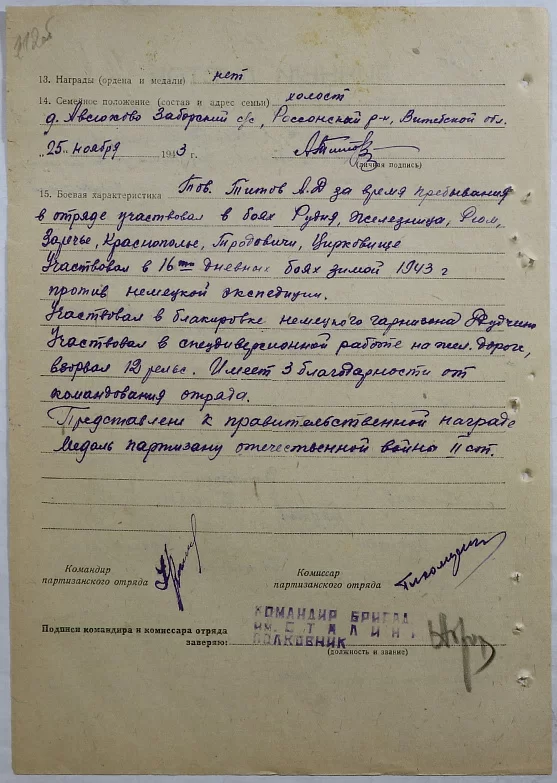 212об
13. Награды (ордена и медали) нет
14. Семейное положение (состав и адрес семьи) холост
д. Авсюхово Заборский с/с, Россонский р-н, Витебской обл.
„25" ноября 1943 г.
(личная подпись)
15. Боевая характеристика Тов. Титов А.Д за время пребывания
в отряде участвовал в боях Рудня, Железница,
Заречье, Краснополье, Тродовичи, Цирковище
Участвовал в 16ти дневных боях зимой 1943 г
против немецкой экспедиции.
Участвовал в блакировке немецкого гарнизона
Участвовал в спецдиверсионной работе на жел. дороге,
взорвал 12 рельс. Имеет 3 благодарности от
командования отряда.
Представлен к правительственной награде
Медаль партизану отечественной война II ст.
Командир
партизанского отряда
Комиссар
партизанского отряда
Подписи командира и комиссара отряда
заверяю:
КОМАНДИР БРИГАД
ИМ. СТАЛИНА
ПОЛКОВНИК
(должность и звание)